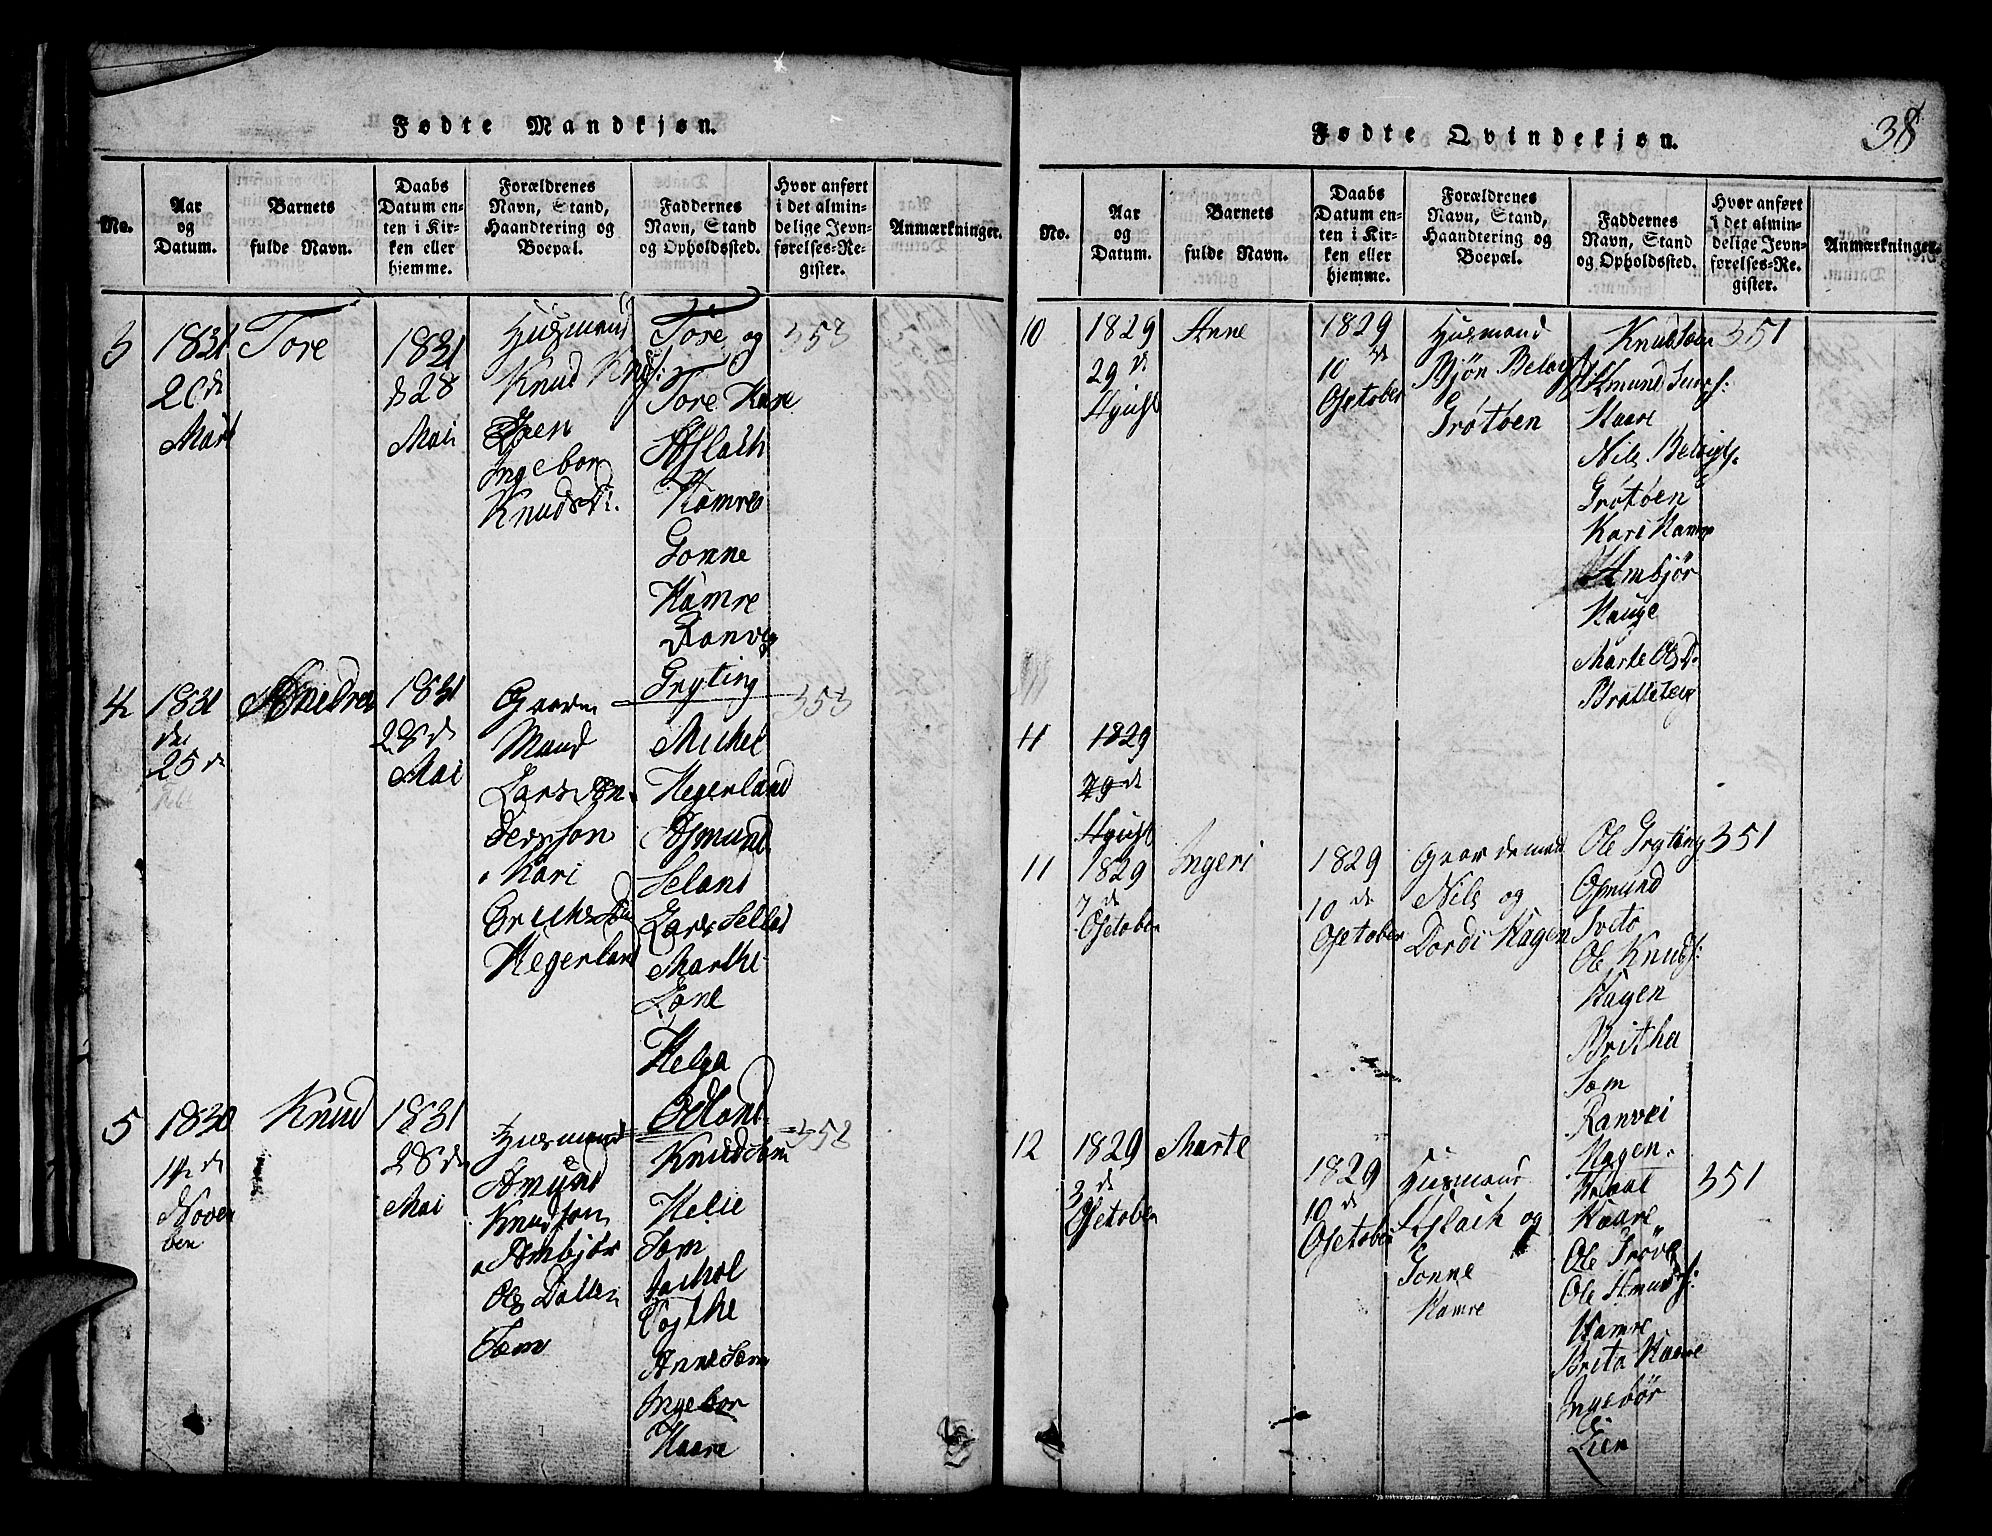 Fødte Mandkjøn.
No.
Aar
og
Datum.
Barnets
fulde Navn.
Daabs
Datum en-
ten i Kir-
ken eller
hjemme.
Forældrenes
Navn, Stand,
Haandtering og
Boepæl.
Faddernes
Navn, Stand
og Opholdssted.
Hvor anført
i det almin-
delige Jevn-
førelses-Re-
gister.
Anmærkninger.
3
1831
20 de
Mart
Tore
1831
d 28
Mai
Husmand
Knud
Lien
Ingebor
Knudsd.
Tore og
Tore Kare
Aslach
Hamre
Gonne
Hamre
Ranvei
Gryting
353
4
1831
25 d
Anedrea
1831
28 de
Mai
Mand
Lars An
dersson
Kari
Erichsd
Hegerland
Michel
Hegerland
Asmund
Seland
Lars Selland
Marthe
Lone
Helga
Odland
353
5
1830
14 de
Novem
ber
Knud
1831
28 de
Mai
Husmand
Amund
Knudson
Ambjør
Ols Datter
Søm
Knud Søm
Helie
Søm
Anne Søm
Ingebor
Haare
353
Fødte Qvindekjøn.
38
No.
Aar
og
Datum.
Barnets
fulde Navn.
Daabs
Datum en-
ten i Kir-
ken eller
hjemme.
Forældrenes
Navn, Stand,
Haandtering og
Boepæl.
Faddernes
Navn, Stand
og Opholdssted.
Hvor anført
i det almin-
delige Jevn-
førelses-Re-
gister.
Anmærkninger.
10
1829
29 de
Agust
Anne
1829
10 de
October
Husmand
Bjøn
Grøtøen
Knudsøen
Haare
Nils
Grøtøen
Kari Hamre
Ambjør
Hauge
Marte Olsd
Bratteteig
351
11
1829
29 de
Agust
11
1829
7 de
October
Ingeri
1829
10 de
October
Gaardemand
Nils og
Dordi Hagen
Ole Gryting
Osmund
Tveito
Ole Knuds:
Hagen
Britha
Søm
Ranvei
Hagen.
351
12
1829
3 de
October
Marte
1829
10 de
October
Husmand
Aslach og
Gonne
Hamre
Haare
Ole
Ole Amunds:
Hamre
Brita Haare
Ingebør
Lien
351